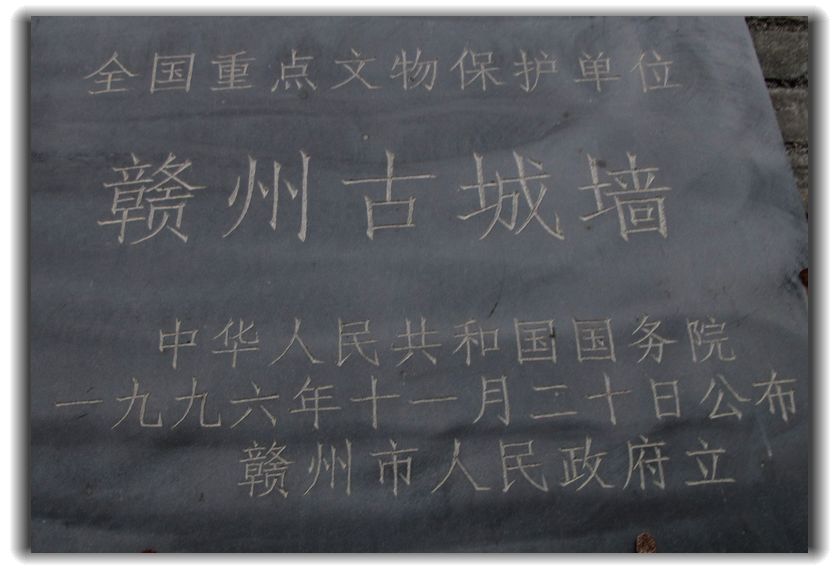 全国重点文物保护单位
赣州古城墙
中华人民共和国国务院
一九九六年十一月二十日公布
赣州市人民政府立